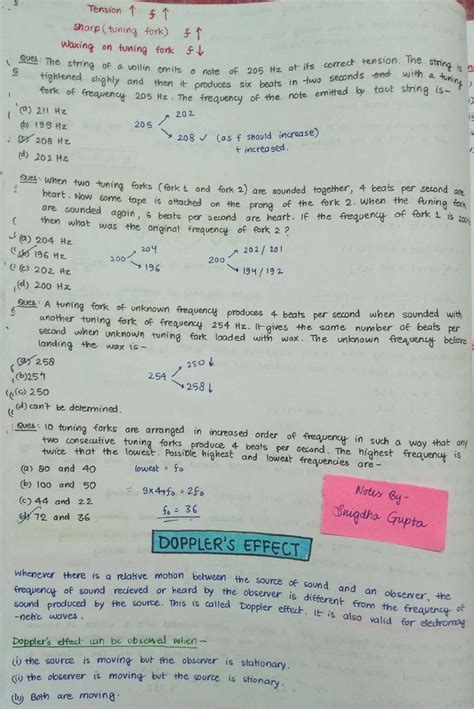 Tension ↑ f ↑
Sharp (tuning fork) f ↑
Waxing on tuning fork f ↓
Ques: The string of a voilin emits a note of 205 Hz at its correct tension. The string is
tightened slighly and then it produces six beats in two seconds with a tuning
fork of frequency 205 Hz. The frequency of the note emitted by taut string is-
(a) 211 Hz
(b) 199 Hz
(c) 208 Hz
(d) 202 Hz
205 202
208 ✓ (as f should increase)
+ increased.
Ques: When two tuning forks (fork 1 and fork 2) are sounded together, 4 beats per second are
heart. Now some tape is attached on the prong of the fork 2. When the tuning fork
are sounded again, 6 beats per second are heart. If the frequency of fork 1 is
then what was the original frequency of fork 2 ?
(a) 204 Hz
(b) 196 Hz
(c) 202 Hz
(d) 200 Hz
200 204
196
200 202 / 201
194 / 192
Ques: A tuning fork of unknown frequency produces 4 beats per second when sounded with
another tuning fork of frequency 254 Hz. It gives the same number of beats per
second when unknown tuning fork loaded with wax. The unknown frequency before
landing the wax is -
(a) 258
(b) 254
(c) 250
(d) can't be determined.
254 250 ↓
258 ↓
Ques: 10 tuning forks are arranged in increased order of frequency in such a way that any
two consecutive tuning forks produce 4 beats per second. The highest frequency is
twice that the lowest. Possible highest and lowest frequencies are -
(a) 80 and 40
(b) 100 and 50
(c) 44 and 22
(d) 72 and 36
lowest = f₀
∵ 9×4+f₀ = 2f₀
f₀ = 36
Notes By-
Snigdha Gupta
DOPPLER'S EFFECT
Whenever there is a relative motion between the source of sound and an observer, the
frequency of sound recieved or heard by the observer is different from the frequency of
sound produced by the source. This is called Doppler effect. It is also valid for electromag
-netic waves.
Doppler's effect can be observed when -
(i) the source is moving but the observer is stationary.
(ii) the observer is moving but the source is stionary.
Both are moving.